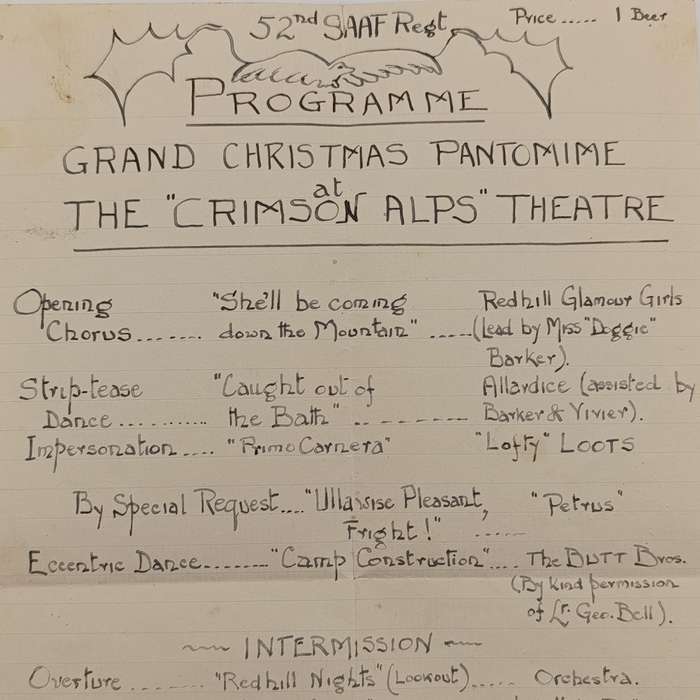 52nd SAAF Regt. Price ..... 1 Beer
PROGRAMME
GRAND CHRISTMAS PANTOMIME
at
THE "CRIMSON ALPS" THEATRE
Opening "She'll be coming Redhill Glamour Girls
Chorus ....... down the Mountain" ..... (lead by Miss "Doggie"
Barker).
Strip-tease "Caught out of Allardice (assisted by
Dance .......... the Bath" .......... Barker & Vivier).
Impersonation .... "Primo Carnera" "Lofty" LOOTS
By Special Request.... "Ullawise Pleasant, "Petrus"
Fright!" ......
Eccentric Dance........ "Camp Construction".... The BUTT Bros.
(By kind permission
of Lr. Geo. Bell).
INTERMISSION
Overture ........ "Redhill Nights" (Lookout)..... Orchestra.